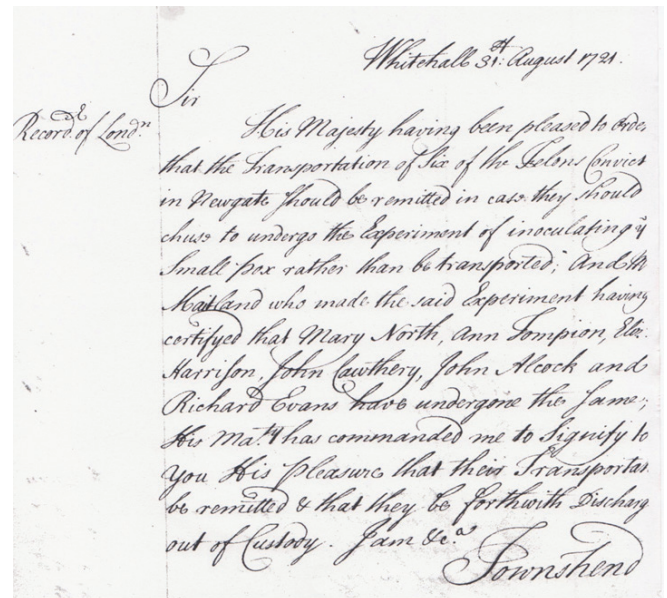 Whitehall 31st: August 1721.
Sir
Record.r of Lond.n
His Majesty having been pleased to Order
that the Transportation of Six of the Felons Convict
in Newgate should be remitted in case they should
chuse to undergo the Experiment of inoculating ye
Small pox rather than be transported; And Mr
Maitland who made the said Experiment having
certifyed that Mary North, Ann Tompion, Eliz:
Harrison, John Cawthery, John Alcock and
Richard Evans have undergone the same;
His Ma.ty has commanded me to Signify to
you His Pleasure that their Transportat.
be remitted & that they be forthwith Discharg
out of Custody. I am &c.a
Townshend